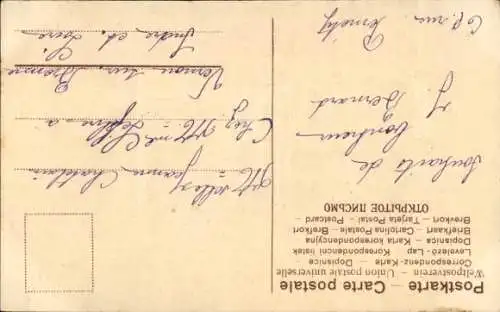 Postkarte – Carte postale
Weltpostverein – Union postale universelle
Correspondenz-Karte – Dopisnice –
Levelező-Lap – Korespondencni listek
Dopisnica – Karta korespondencyjna
Briefkaart – Cartolina Postale – Brefkort
Brevkort – Tarjeta Postal – Postcard –
ОТКРЫТОЕ ПИСЬМО
Souhaits de
bonheur
Y. Bernard
rue
Melle Jeanne
Chez Mme
Vernou sur Brenne
Indre et Loire